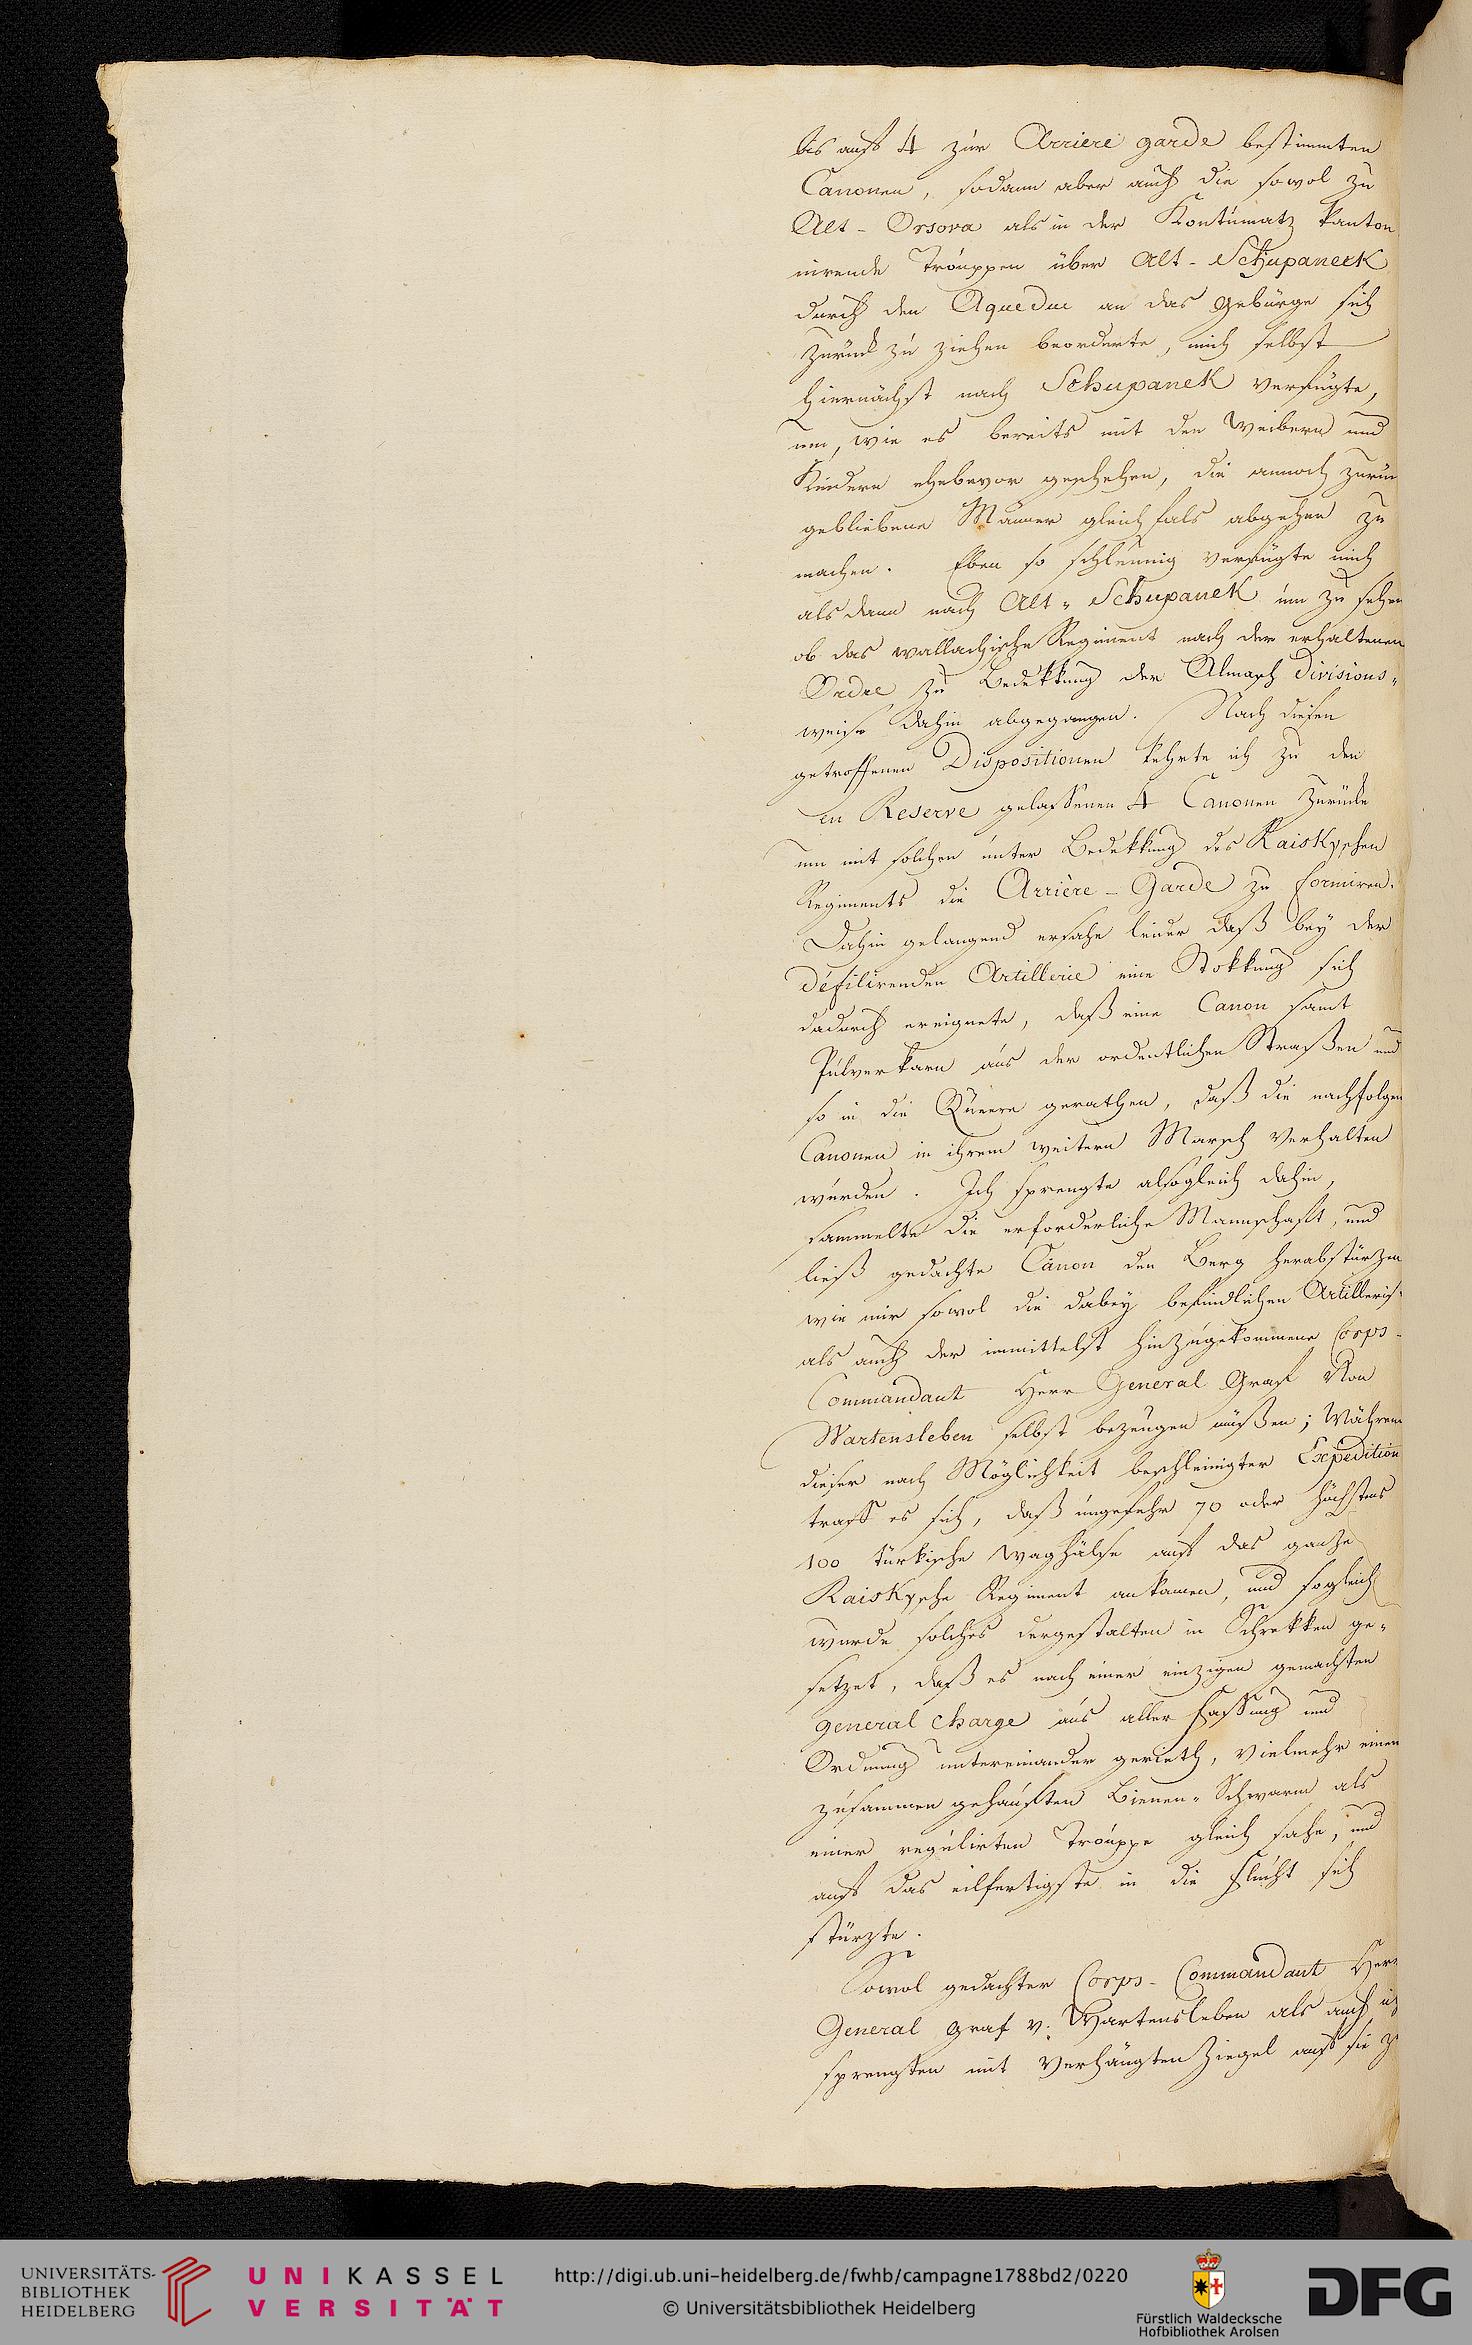 bis auf 4 zur Arriere garde bestimmten
Canonen, sodann aber auch die sowol zu
Alt - Orsova als in der Kontumatz kanton
nirende Trouppen über Alt - Schupaneck
durch den Aqueduc an das Gebürge sich
zurück zu ziehen beorderte, mich selbst
hiernächst nach Schupanek verfügte,
um, wie es bereits mit den Weibern und
Kindern ehebevor geschehen, die annoch zurü
gebliebene Männer gleichfals abgehen zu
machen. Eben so schleunig verfügte mich
als dann nach Alt - Schupanek um zu sehen
ob das wallachische Regiment nach der erhaltenen
Ordre zu Bedekkung der Almasch Divisions-
weise dahin abgegangen. Nach diesen
getroffenen Dispositionen kehrte ich zu den
in Reserve gelassenen 4 Canonen zurücke
um mit solchen unter Bedekkung des Raiskyschen
Regiments die Arrière - Garde zu formiren.
Dahin gelangend ersahe leider daß bey der
défilirenden Artillerie eine Stokkung sich
dadurch ereignete, daß eine Canon samt
Pulverkarn aus der ordentlichen Straßen und
so in die Queere gerathen, daß die nachfolgen
Canonen in ihrem weitern Marsch verhalten
wurden. Ich sprengte alsogleich dahin,
sammelte die erforderliche Mannschaft, und
ließ gedachte Canon den Berg herabstürzen
wie mir sowol die dabey befindlichen Artilleris
als auch der inmittelst hinzugekommene Corps-
Commandant Herr General Graf von
Wartensleben selbst bezeugen müßen; Währen
dieser nach Möglichkeit beschleinigter Expedition
traff es sich, daß ungefehr 70 oder höchstens
100 türkische Waghälse auf das ganze
Raiskysche Regiment ankamen, und sogleich
wurde solches dergestalten in Schrekken ge-
setzet, daß es nach einer einzigen gemachten
general charge aus aller Fassung und
Ordnung untereinander gerieth, vielmehr einen
zusammen gehauften Bienen- Schwarm als
einer regulirten Trouppe gleich sahe, und
auf das eilfertigste in die Flucht sich
stürzte.
Sowol gedachter Corps - Commandant Herr
General Graf v: Wartensleben als auch ich
sprengten mit verhängten Ziegel auf sie z
UNIVERSITÄTS-
BIBLIOTHEK
HEIDELBERG
UNIKASSEL
VERSITÄT
http://digi.ub.uni-heidelberg.de/fwhb/campagne1788bd2/0220
© Universitätsbibliothek Heidelberg
Fürstlich Waldecksche
Hofbibliothek Arolsen
DFG